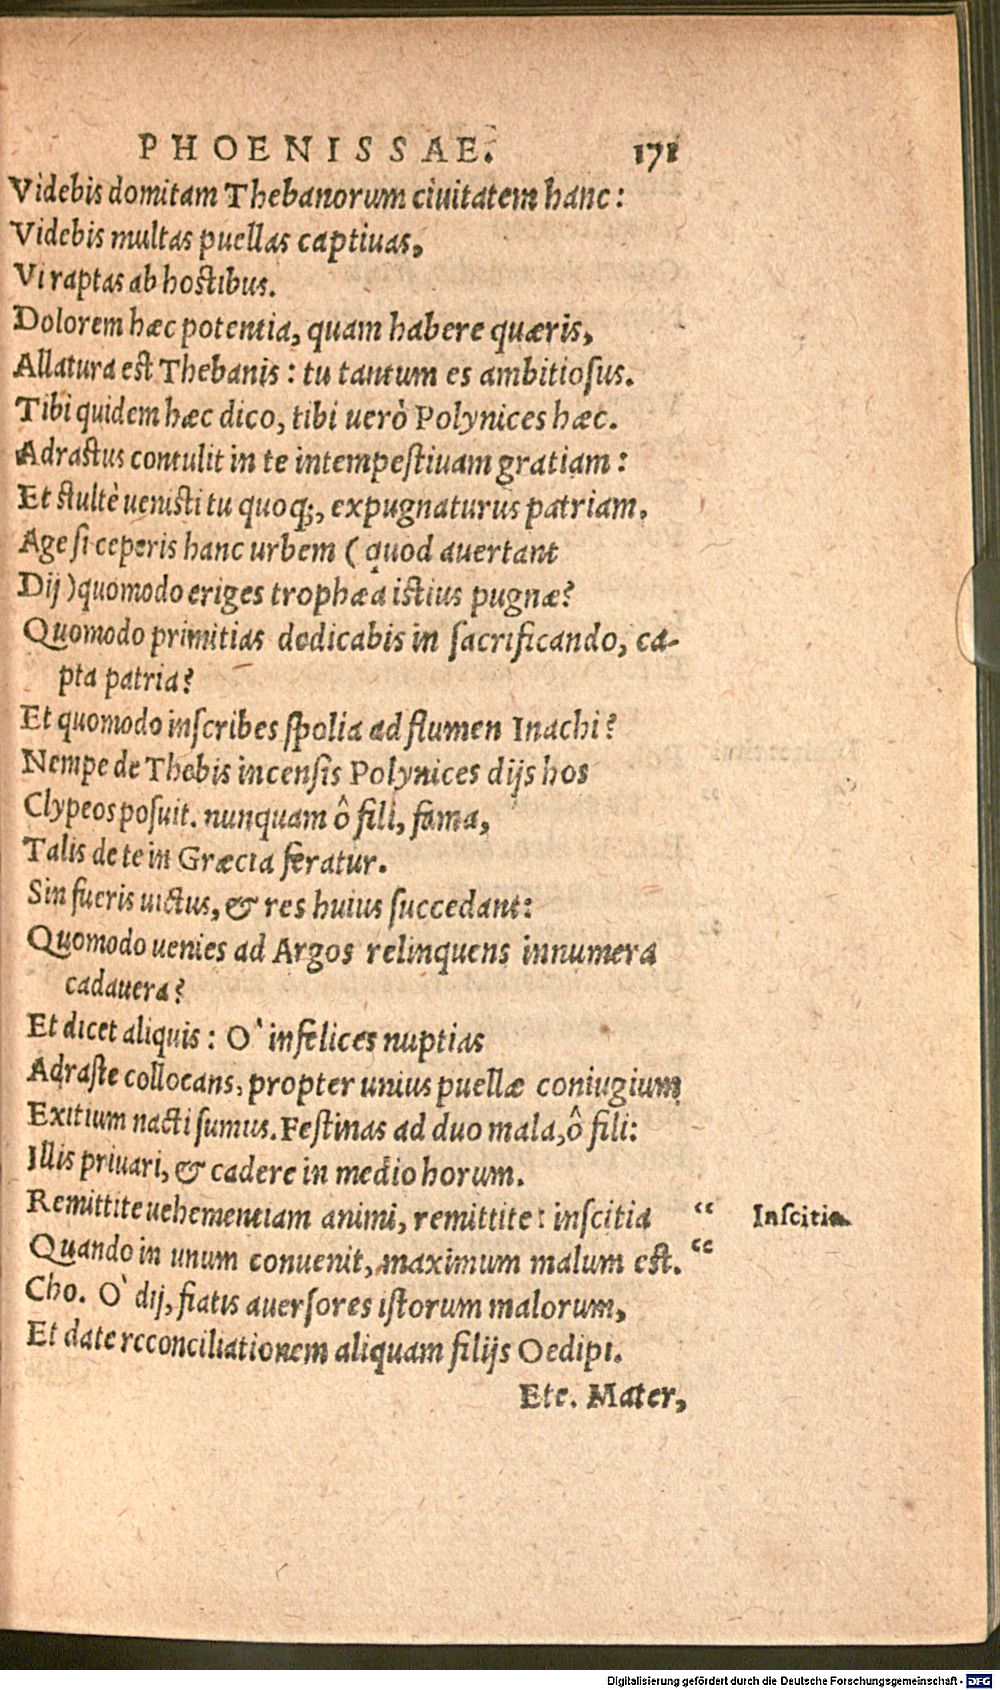 PHOENISSAE. 171
Videbis domitam Thebanorum ciuitatem hanc:
Videbis multas puellas captiuas,
Vi raptas ab hostibus.
Dolorem hæc potentia, quam habere quæris,
Allatura est Thebanis: tu tantum es ambitiosus.
Tibi quidem hæc dico, tibi uerò Polynices hæc.
Adrastus contulit in te intempestiuam gratiam:
Et stultè uenisti tu quoq;, expugnaturus patriam.
Age si ceperis hanc urbem (quod auertant
Dij) quomodo eriges trophæa istius pugnæ?
Quomodo primitias dedicabis in sacrificando, ca-
pta patria?
Et quomodo inscribes spolia ad flumen Inachi?
Nempe de Thebis incensis Polynices dijs hos
Clypeos posuit. nunquam ô fili, fama,
Talis de te in Græcia feratur.
Sin fueris uictus, & res huius succedant:
Quomodo uenies ad Argos relinquens innumera
cadauera?
Et dicet aliquis: O` infelices nuptias
Adraste collocans, propter unius puellæ coniugium
Exitium nacti sumus. Festinas ad duo mala, ô fili:
Illis priuari, & cadere in medio horum.
Remittite uehementiam animi, remittite: inscitia “ Inscitia.
Quando in unum conuenit, maximum malum est. “
Cho. O` dij, fiatis auersores istorum malorum,
Et date reconciliationem aliquam filijs Oedipi.
Ete. Mater,
Digitalisierung gefördert durch die Deutsche Forschungsgemeinschaft - DFG